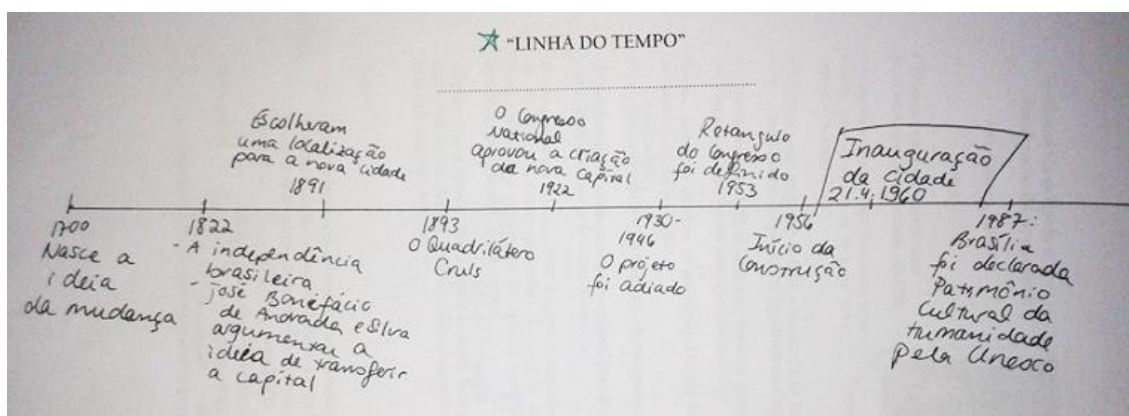 "LINHA DO TEMPO"
1700
Nasce a
ideia
da mudança
1822
- A independência
brasileira
- José Bonifácio
de Andrada e Silva
argumentar a
ideia de transferir
a capital
Escolheram
uma localização
para a nova cidade
1891
1893
O Quadrilátero
Cruls
O Congresso
National
aprovou a criação
da nova capital
1922
1930-
1946
O projeto
foi adiado
Retangulo
do Congresso
foi definido
1953
1956
Início da
Construção
Inauguração
da cidade
21.4.1960
1987:
Brasília
foi declarada
Patrimônio
Cultural da
Humanidade
pela Unesco